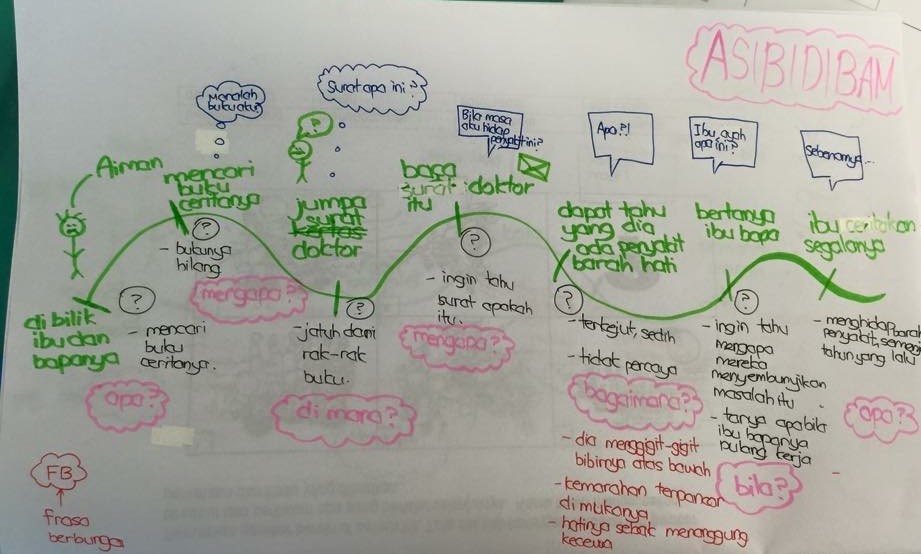 ASIBIDIBAM
Manalah
buku aku?
Surat apa ini?
?
Bila masa
aku hidap
penyakit ini?
Apa?!
Ibu, ayah
apa ini?
Sebenarnya...
Aiman
mencari
buku
ceritanya
jumpa
surat
kertas
doktor
baca
surat doktor
itu
dapat tahu
yang dia
ada penyakit
barah hati
bertanya
ibu bapa
ibu ceritakan
segalanya
di bilik
ibu dan
bapanya
?
- mencari
buku
ceritanya.
apa?
?
- bukunya
hilang
mengapa?
?
- jatuh dari
rak-rak
buku.
di mana?
?
- ingin tahu
surat apakah
itu.
mengapa?
?
- terkejut, sedih
- tidak percaya
bagaimana?
- dia menggigit-gigit
bibirnya atas bawah
- kemarahan terpancar
di mukanya
- hatinya sebak menanggung
kecewa
?
- ingin tahu
mengapa
mereka
menyembunyikan
masalah itu
- tanya apabila
ibu bapanya
pulang kerja
bila?
- menghidap barah
penyakit,
tahun yang lalu
apa?
FB
frasa
berbunga